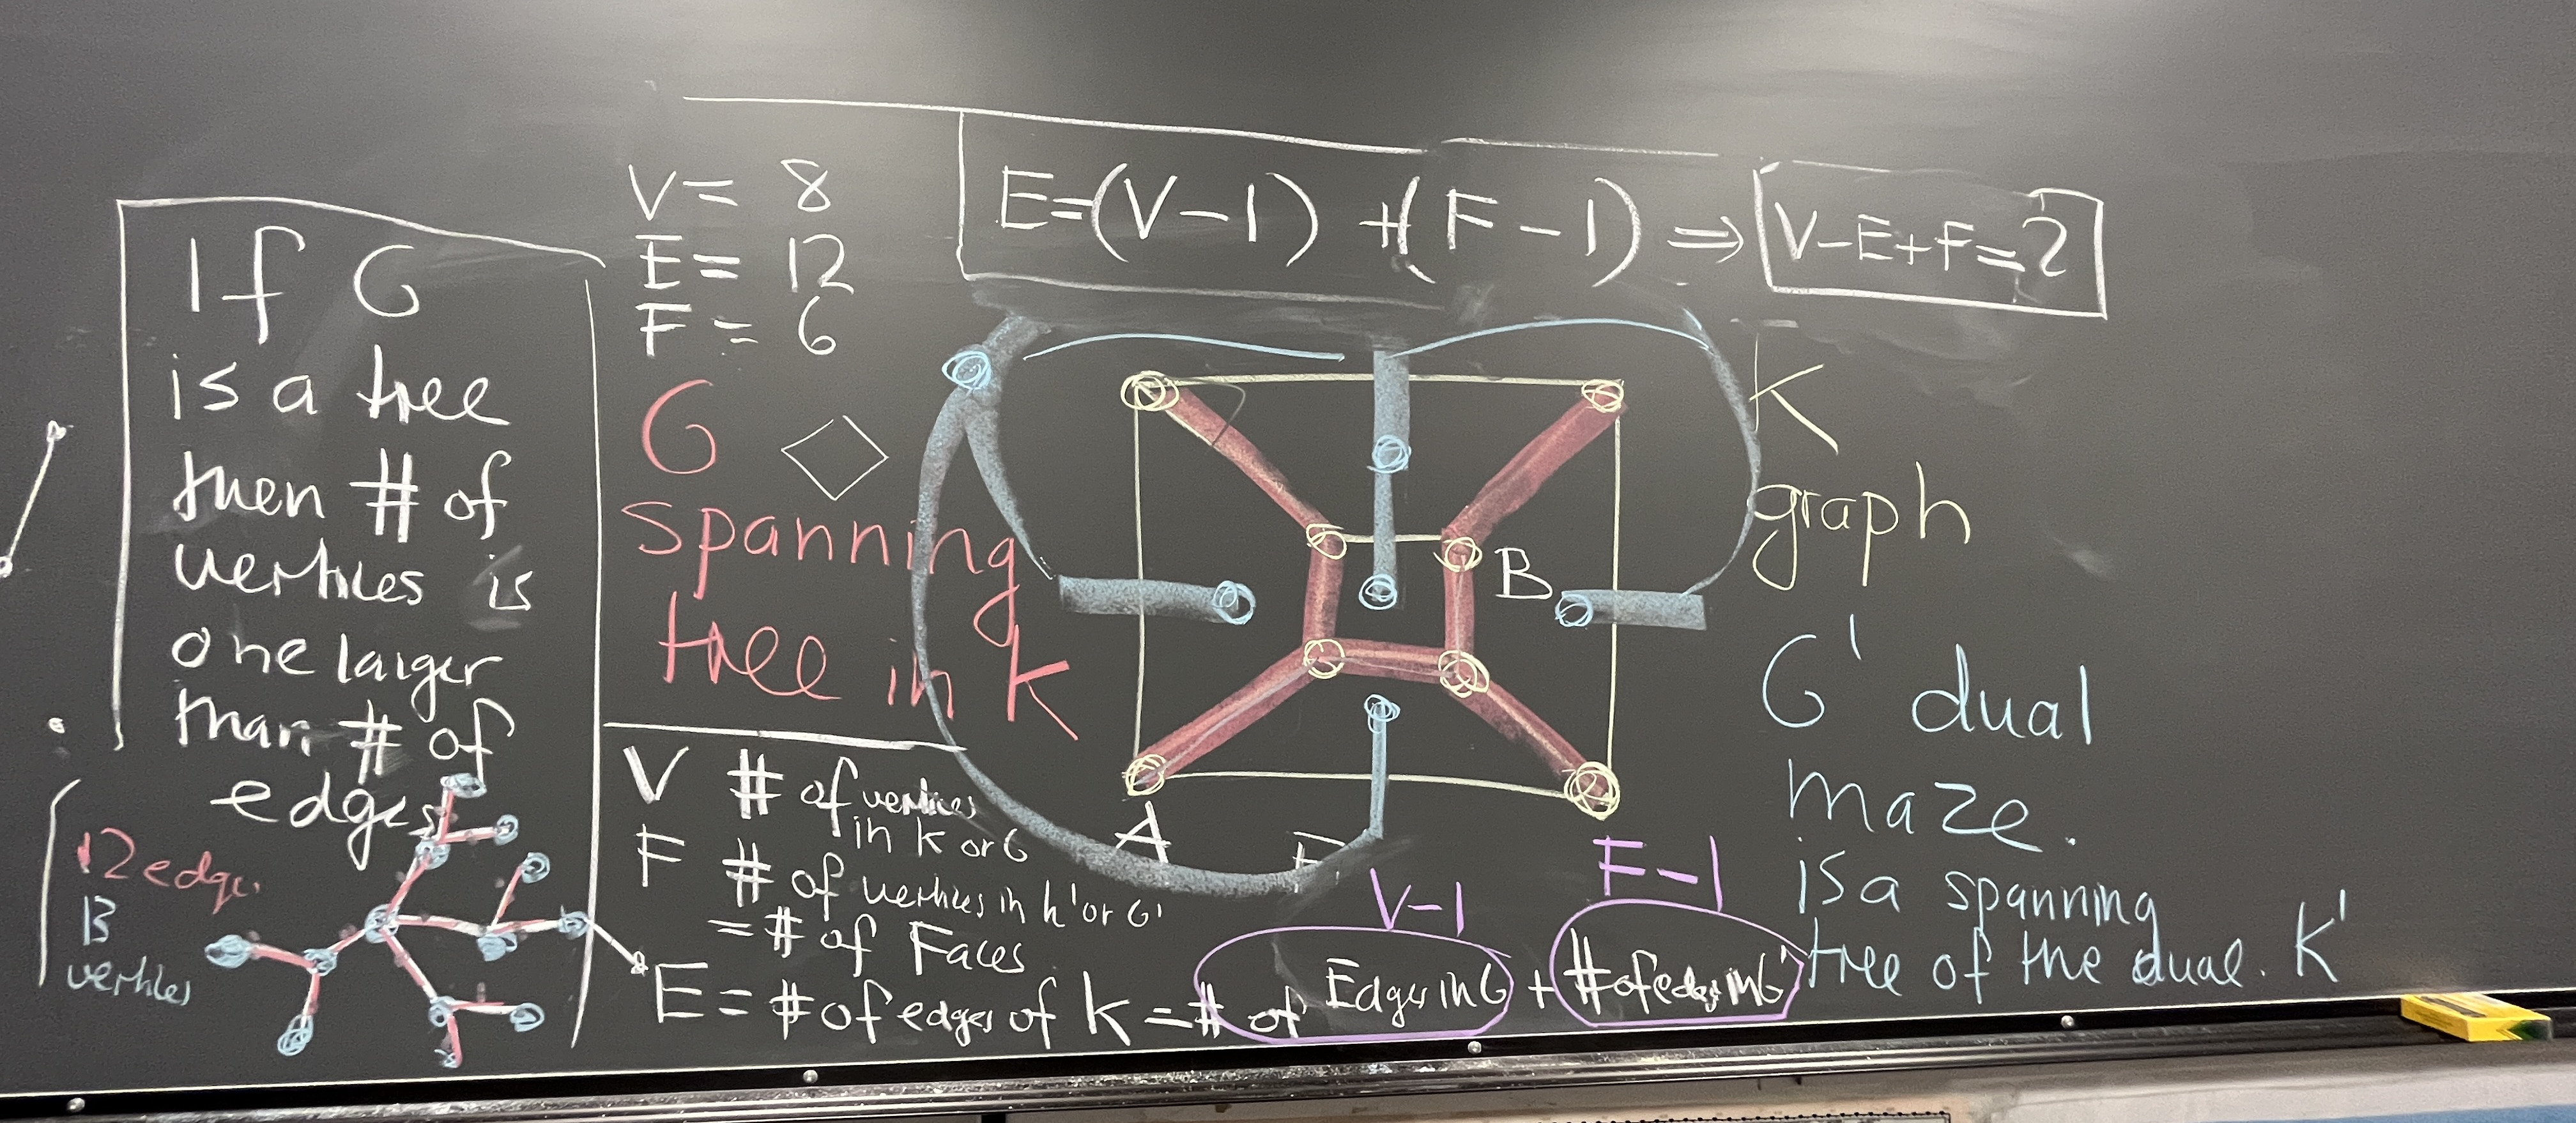 If G
is a tree
then # of
vertices is
one larger
than # of
edges
12 edges
13
vertices
V = 8
E = 12
F = 6
G
spanning
tree in K
E=(V-1) +(F-1) ⇒ V-E+F=2
B
A
F
K
graph
G' dual
maze.
is a spanning
tree of the dual. K'
V # of vertices
in K or G
F # of vertices in K' or G'
= # of Faces
V-1
F-1
E = # of edges of K = # of Edges in G + # of edges in G'